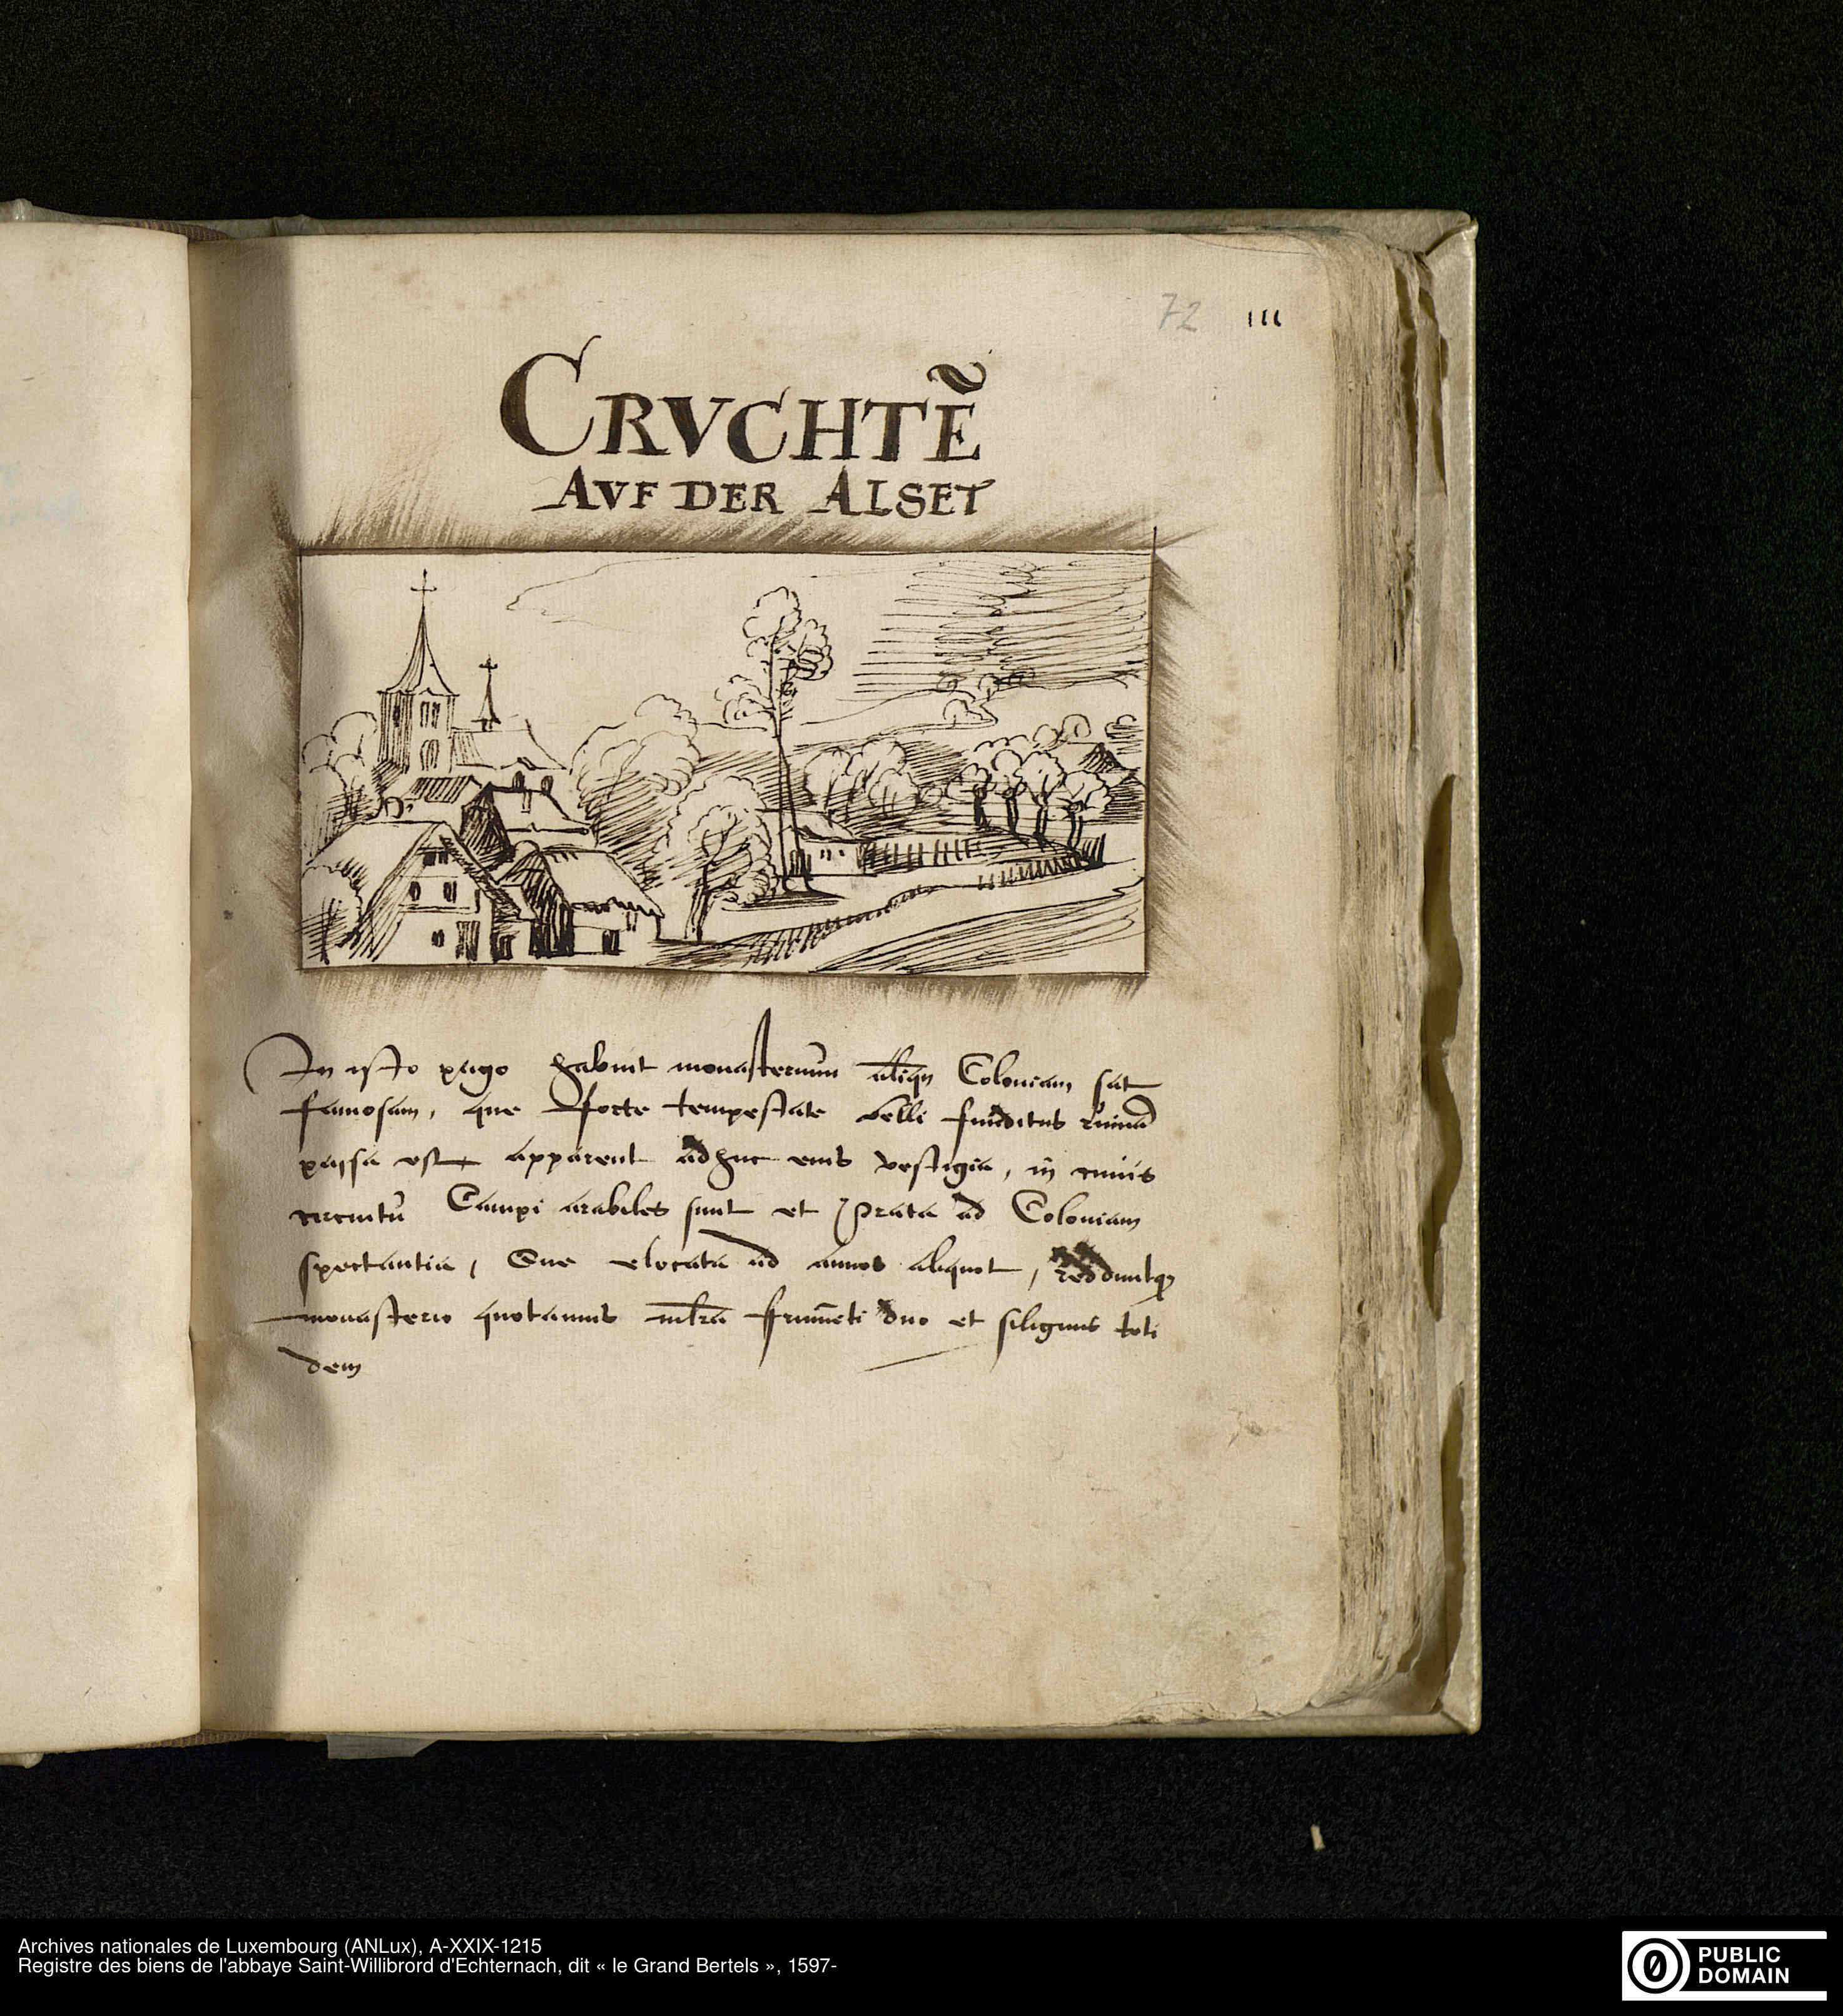 72 111
CRVCHTẼ
AVF DER ALSET
In isto pago habuit monasterium aliqn Coloniam sat
famosam, que forte tempestate belli funditus ruinã
passa est apparent adhuc eius vestigia, in cuius
circuitũ Campi arabiles sunt et Prata ad Coloniam
spectantia, Que elocata ad annos aliquot, redduntq
monasterio quotannis mlra frumẽti duo et siliginis toti
dem
Archives nationales de Luxembourg (ANLux), A-XXIX-1215
Registre des biens de l'abbaye Saint-Willibrord d'Echternach, dit « le Grand Bertels », 1597-
PUBLIC
DOMAIN